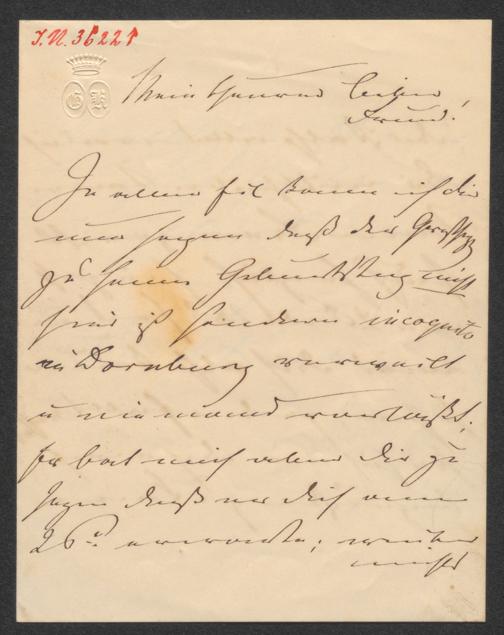 J.N. 36221
Mein theurer lieber
Freund!
In aller Eil kann ich dir
nur sagen daß der Großherzog
zu seinem Geburtstag nicht
hier ist sondern incognito
in Dornburg verweilt
u niemand
er bat mich aber dir zu
sagen daß er dich am
26n erwarte;